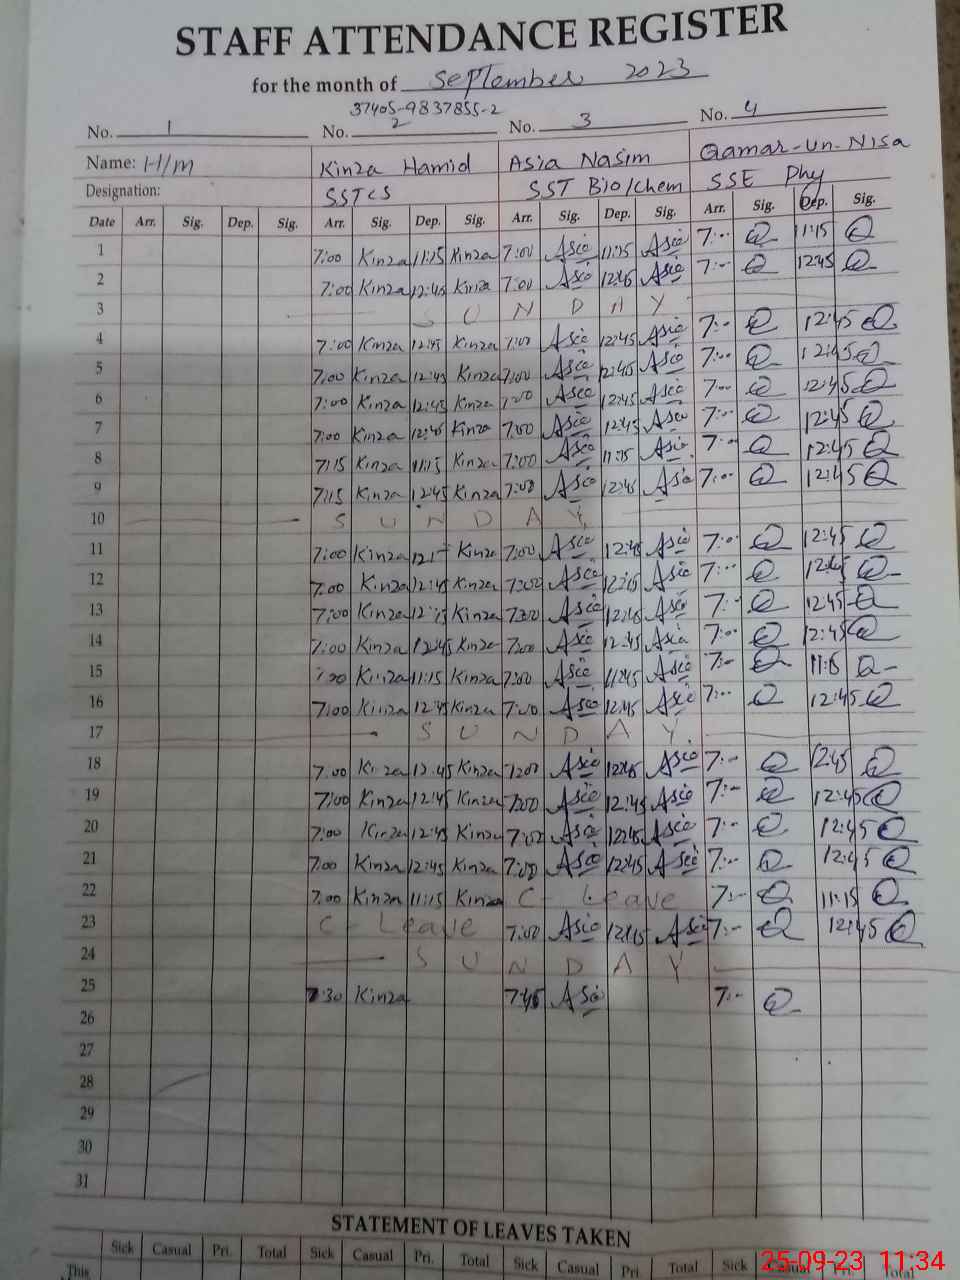 STAFF ATTENDANCE REGISTER
for the month of September 2023
37405-9837855-2
No. 1 No. 2 No. 3 No. 4
Name: H/M Kinza Hamid Asia Nasim Qamar-un-Nisa
Designation: SSTCS SST Bio/Chem SSE Phy
Date Arr. Sig. Dep. Sig. Arr. Sig. Dep. Sig. Arr. Sig. Dep. Sig. Arr. Sig. Dep. Sig.
1 7:00 Kinza 11:15 Kinza 7:00 Asia 11:15 Asia 7:-- Q 11:15 Q
2 7:00 Kinza 12:45 Kinza 7:00 Asia 12:45 Asia 7:-- Q 12:45 Q
3 SUNDAY
4 7:00 Kinza 12:45 Kinza 7:00 Asia 12:45 Asia 7:-- Q 12:45 Q
5 7:00 Kinza 12:45 Kinza 7:00 Asia 12:45 Asia 7:-- Q 12:45 Q
6 7:00 Kinza 12:45 Kinza 7:00 Asia 12:45 Asia 7:-- Q 12:45 Q
7 7:00 Kinza 12:45 Kinza 7:00 Asia 12:45 Asia 7:-- Q 12:45 Q
8 7:15 Kinza 11:15 Kinza 7:00 Asia 11:15 Asia 7:-- Q 12:45 Q
9 7:15 Kinza 12:45 Kinza 7:00 Asia 12:45 Asia 7:-- Q 12:45 Q
10 SUNDAY
11 7:00 Kinza Kinza 7:00 Asia 12:45 Asia 7:-- Q 12:45 Q
12 7:00 Kinza 12:45 Kinza 7:00 Asia 12:45 Asia 7:-- Q 12:45 Q
13 7:00 Kinza 12:45 Kinza 7:00 Asia 12:45 Asia 7:-- Q 12:45 Q
14 7:00 Kinza 12:45 Kinza 7:00 Asia 12:45 Asia 7:-- Q 12:45 Q
15 Kinza 11:15 Kinza 7:00 Asia 11:45 Asia 7:-- Q 11:15 Q
16 7:00 Kinza 12:45 Kinza 7:00 Asia 12:45 Asia 7:-- Q 12:45 Q
17 SUNDAY
18 7:00 Kinza 12:45 Kinza 7:00 Asia 12:45 Asia 7:-- Q 12:45 Q
19 7:00 Kinza 12:45 Kinza 7:00 Asia 12:45 Asia 7:-- Q 12:45 Q
20 7:00 Kinza 12:45 Kinza 7:00 Asia 12:45 Asia 7:-- Q 12:45 Q
21 7:00 Kinza 12:45 Kinza 7:00 Asia 12:45 Asia 7:-- Q 12:45 Q
22 7:00 Kinza 11:15 Kinza C- Leave 7:-- Q 11:15 Q
23 C- Leave 7:00 Asia 12:45 Asia 7:-- Q 12:45 Q
24 SUNDAY
25 7:30 Kinza 7:45 Asia 7:-- Q
26
27
28
29
30
31
STATEMENT OF LEAVES TAKEN
Sick Casual Pri. Total Sick Casual Pri. Total Sick Casual Pri. Total Sick Casual Pri. Total
This
25-09-23 11:34